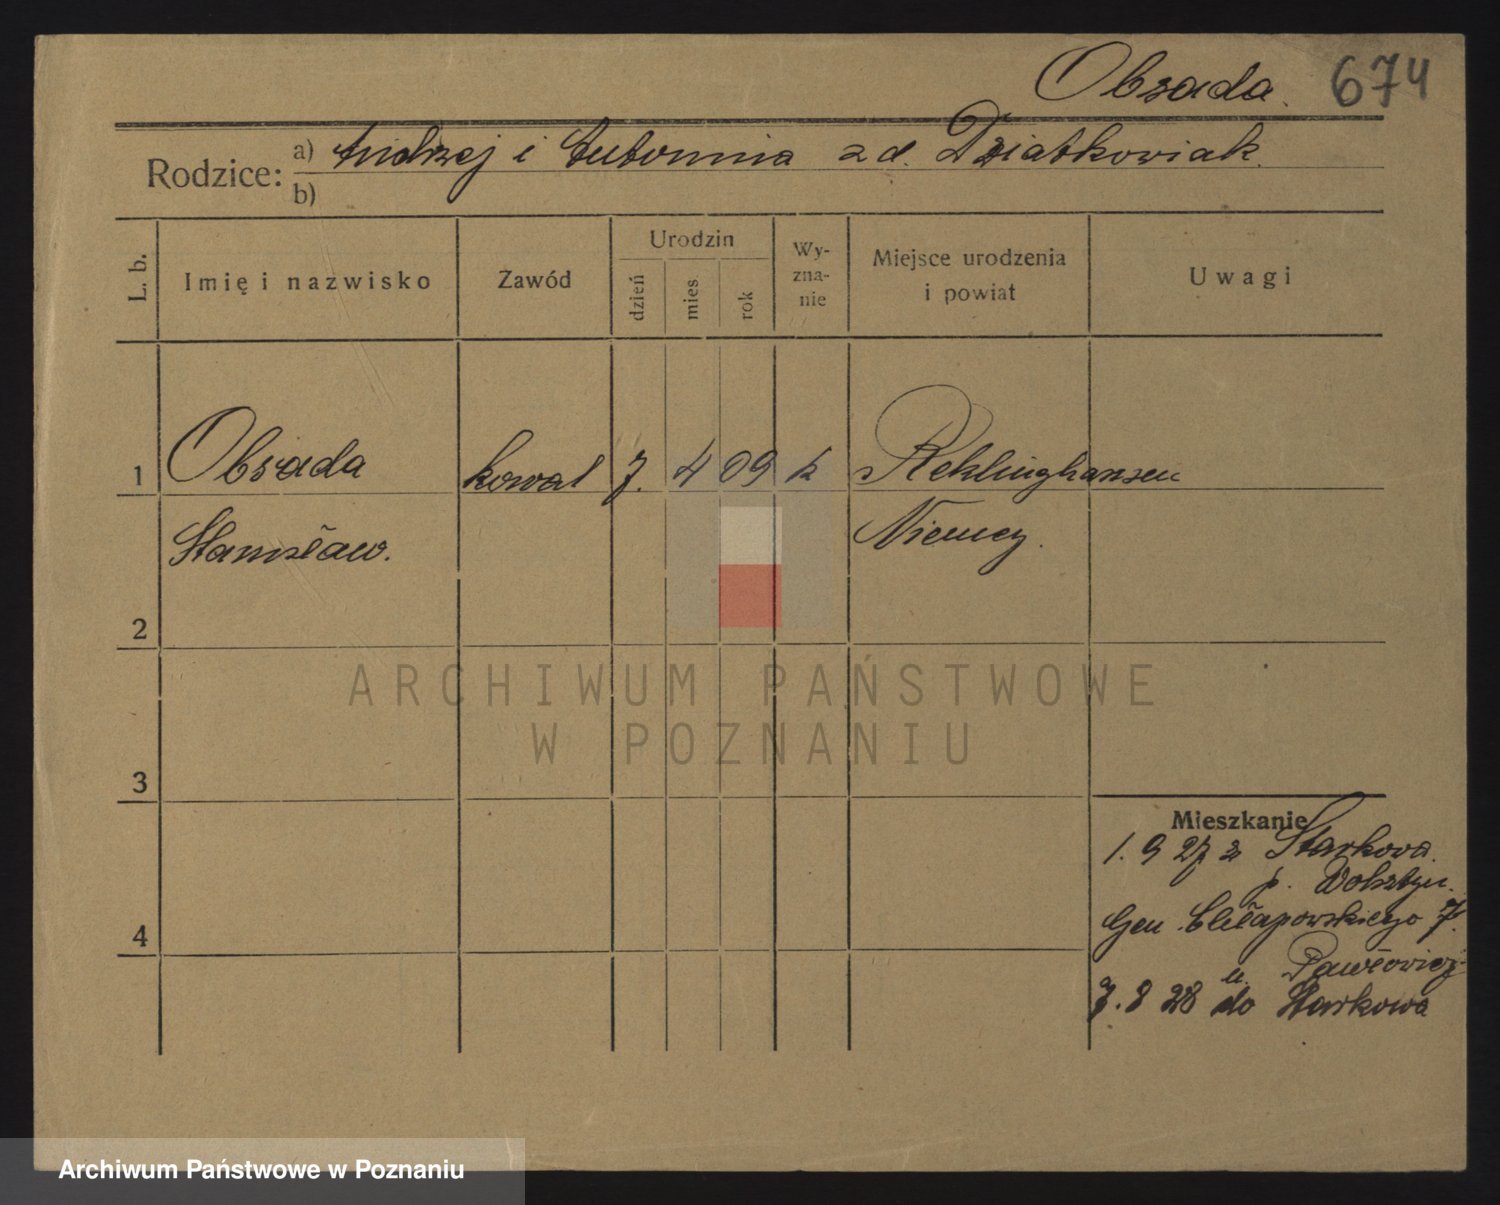 Obsada. 674
Rodzice: a) Andrzej i Lubomina z d. Dziatkowiak.
b)
L. b. Imię i nazwisko Zawód Urodzin dzień mies rok Wyznanie Miejsce urodzenia i powiat Uwagi
1 Obsada kowal 7. 4 09 k Reklinghausen
Stanisław. Niemcy.
2
3
4
Mieszkanie
1. 9 27 z Starkova.
p. Wolsztyn.
Gen. Chłapowskiego 7.
u. Pawłowicz
7. 8 28 do Starkowa
ARCHIWUM PAŃSTWOWE
W POZNANIU
Archiwum Państwowe w Poznaniu